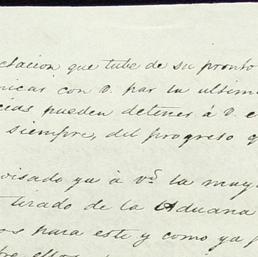 ctacion que tube de su pronto
nicas con V. par la ultim
cias pueden detener á V. e
siempre, del progreso q
visado ya à vs la may
tirado de la Aduana
os para este y como ya